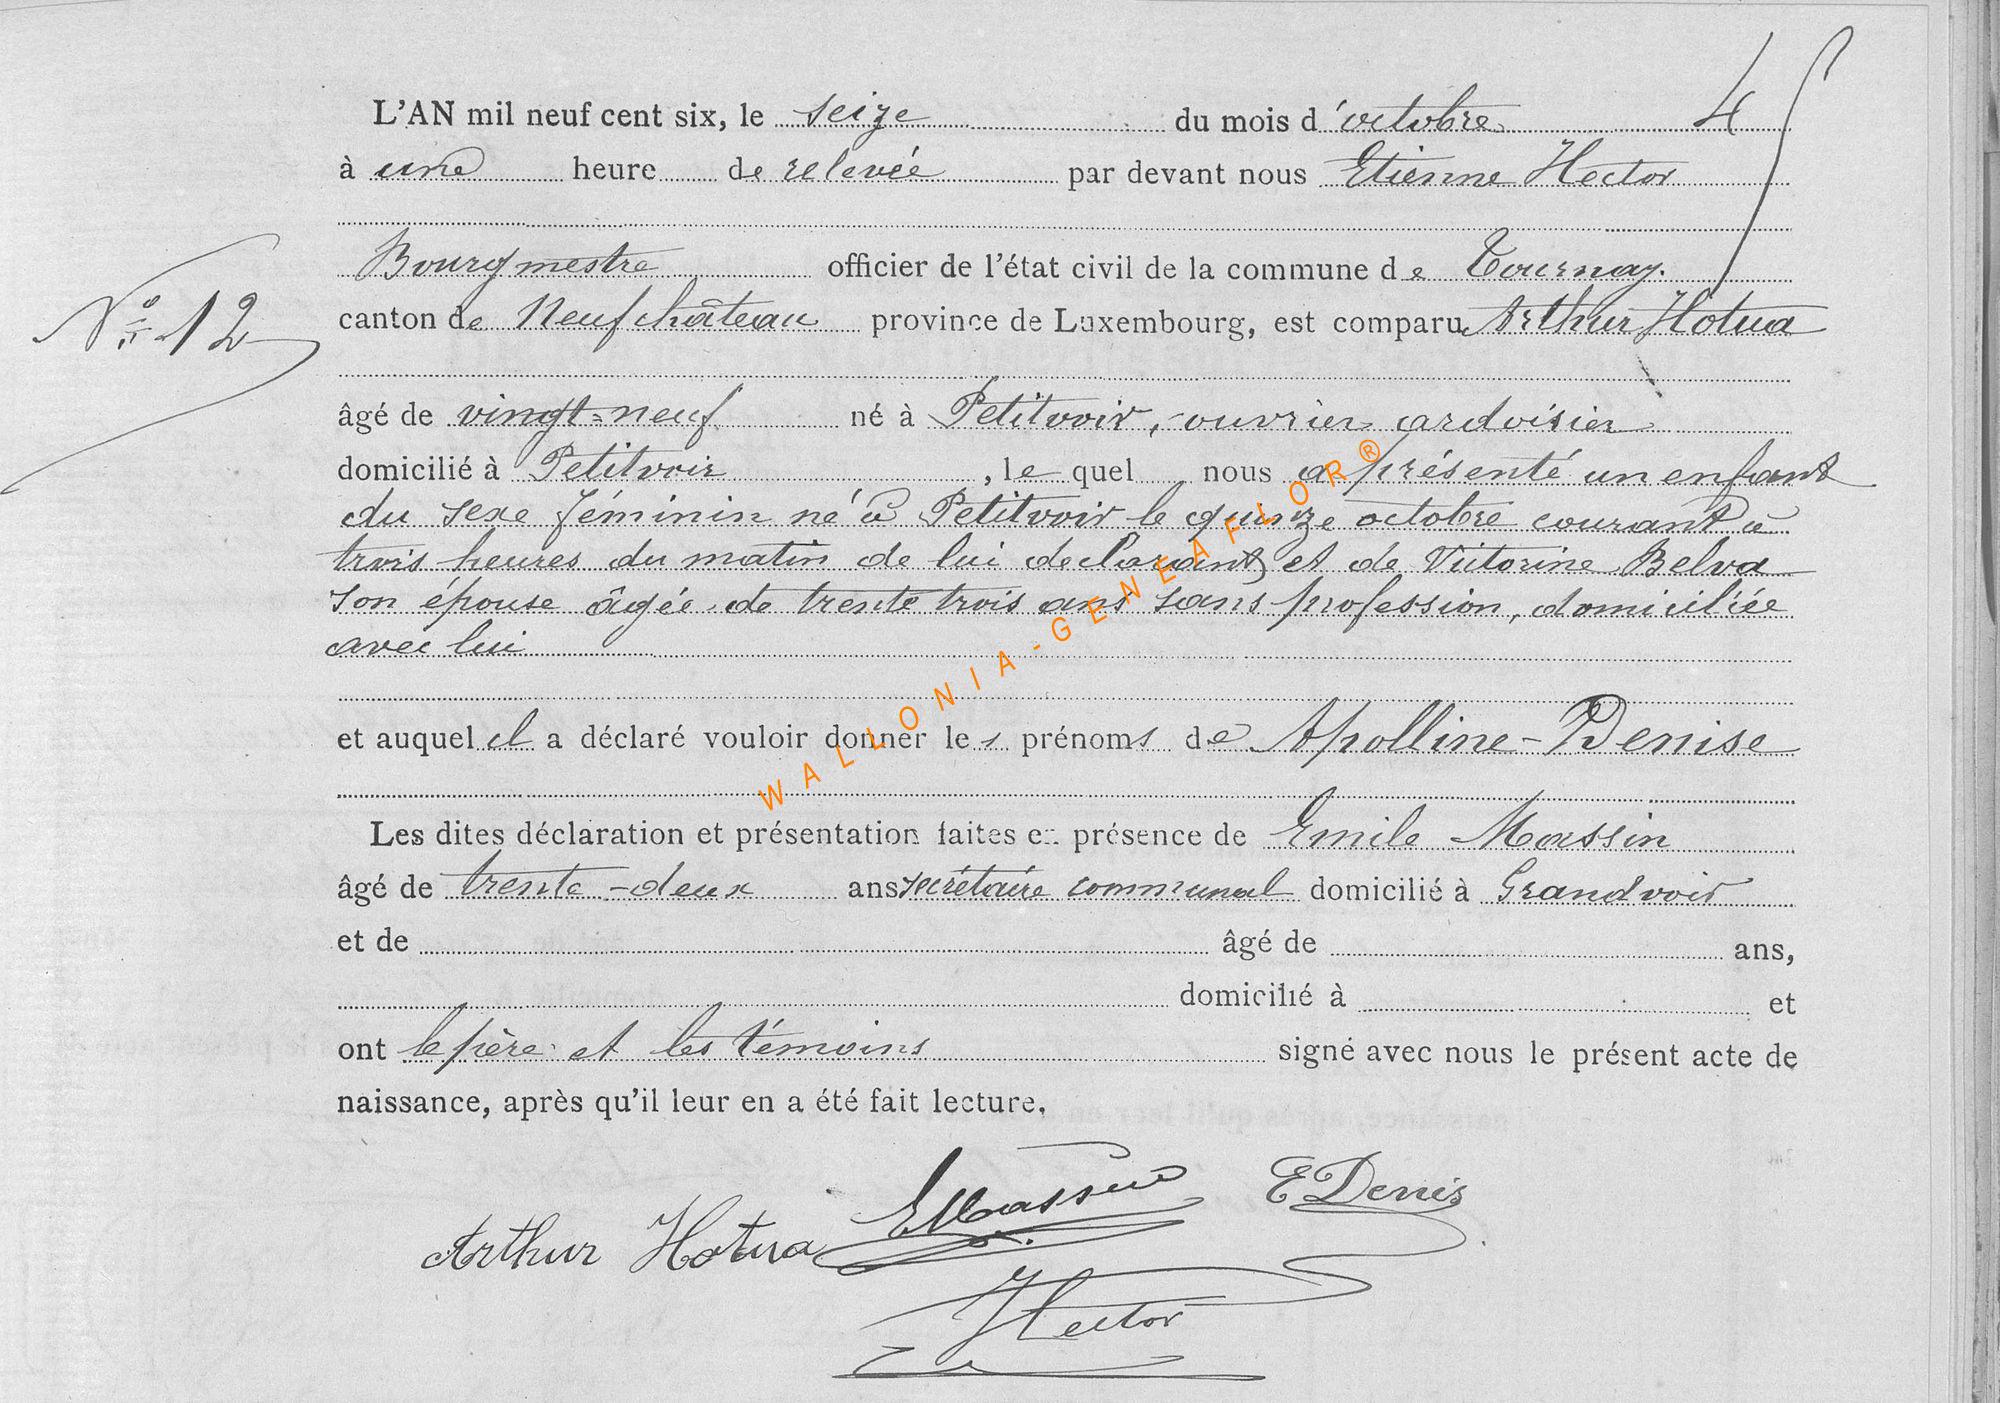 L'AN mil neuf cent six, le seize du mois d'octobre 4
à une heure de relevée par devant nous Etienne Hector
Bourgmestre officier de l'état civil de la commune de Tournay.
N° 12
canton de Neufchâteau province de Luxembourg, est comparu Arthur Hotua
âgé de vingt-neuf né à Petitvoir, ouvrier ardoisier
domicilié à Petitvoir, lequel nous a présenté un enfant
du sexe féminin né à Petitvoir le quinze octobre courant à
trois heures du matin de lui declarant et de Victorine Belva
son épouse âgée de trente trois ans sans profession, domiciliée
avec lui
et auquel il a déclaré vouloir donner les prénoms de Apolline-Denise
Les dites déclaration et présentation faites en présence de Emile Massin
âgé de trente-deux ans secrétaire communal domicilié à Grandvoir
et de âgé de ans,
domicilié à et
ont le père et les témoins signé avec nous le présent acte de
naissance, après qu'il leur en a été fait lecture.
Arthur Hotua EMassin E Denis
Hector
WALLONIA-GENEAFLOR®